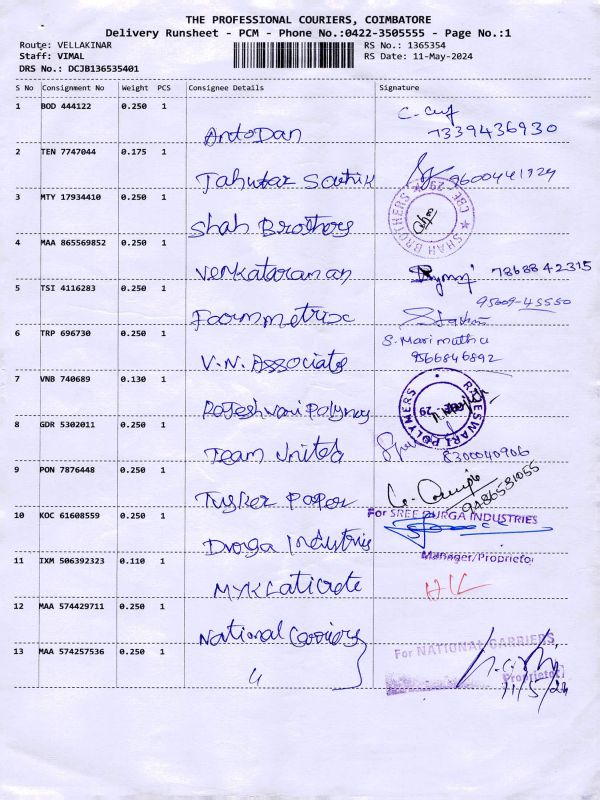 THE PROFESSIONAL COURIERS, COIMBATORE
Delivery Runsheet - PCM - Phone No.:0422-3505555 - Page No.:1
Route: VELLAKINAR RS No.: 1365354
Staff: VIMAL RS Date: 11-May-2024
DRS No.: DCJB136535401
S No Consignment No Weight PCS Consignee Details Signature
1 BOD 444122 0.250 1
AntoDan 7339436930
2 TEN 7747044 0.175 1
9600441924
3 MTY 17934410 0.250 1
Shah Brothers SHAH BROTHERS ★ CBE - 29 ★
4 MAA 865569852 0.250 1
Venkataraman 7868842315
5 TSI 4116283 0.250 1
95009-45550
6 TRP 696730 0.250 1 S. Marimuthu
V.N. Associate 9566846892
7 VNB 740689 0.130 1
Rajeshwari Polymers RAJESWARI POLYMERS
8 GDR 5302011 0.250 1
Team United 8300040906
9 PON 7876448 0.250 1
Tusker Paper 9486581055
10 KOC 61608559 0.250 1 For SREE DURGA INDUSTRIES
Durga Industries Manager/Proprietor
11 IXM 506392323 0.110 1
MYK Laticrete
12 MAA 574429711 0.250 1
National Carriers
13 MAA 574257536 0.250 1 For NATIONAL CARRIERS
Proprietor
11/5/24